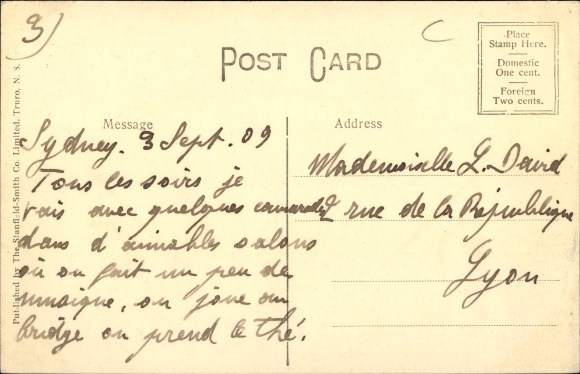 3)
C
POST CARD
Place
Stamp Here.
Domestic
One cent.
Foreign
Two cents.
Published by The Stanfield-Smith Co. Limited, Truro, N. S.
Message
Sydney. 3 Sept. 09
Tous les soirs je
vais avec quelques camarades
dans d'aimables salons
où on fait un peu de
musique, on joue au
bridge on prend le thé.
Address
Mademoiselle L. David
2 rue de la République
Lyon